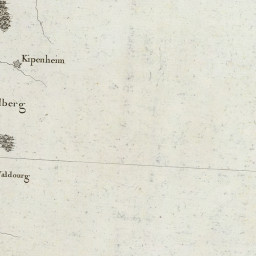 Kipenheim
lberg
Valdourg